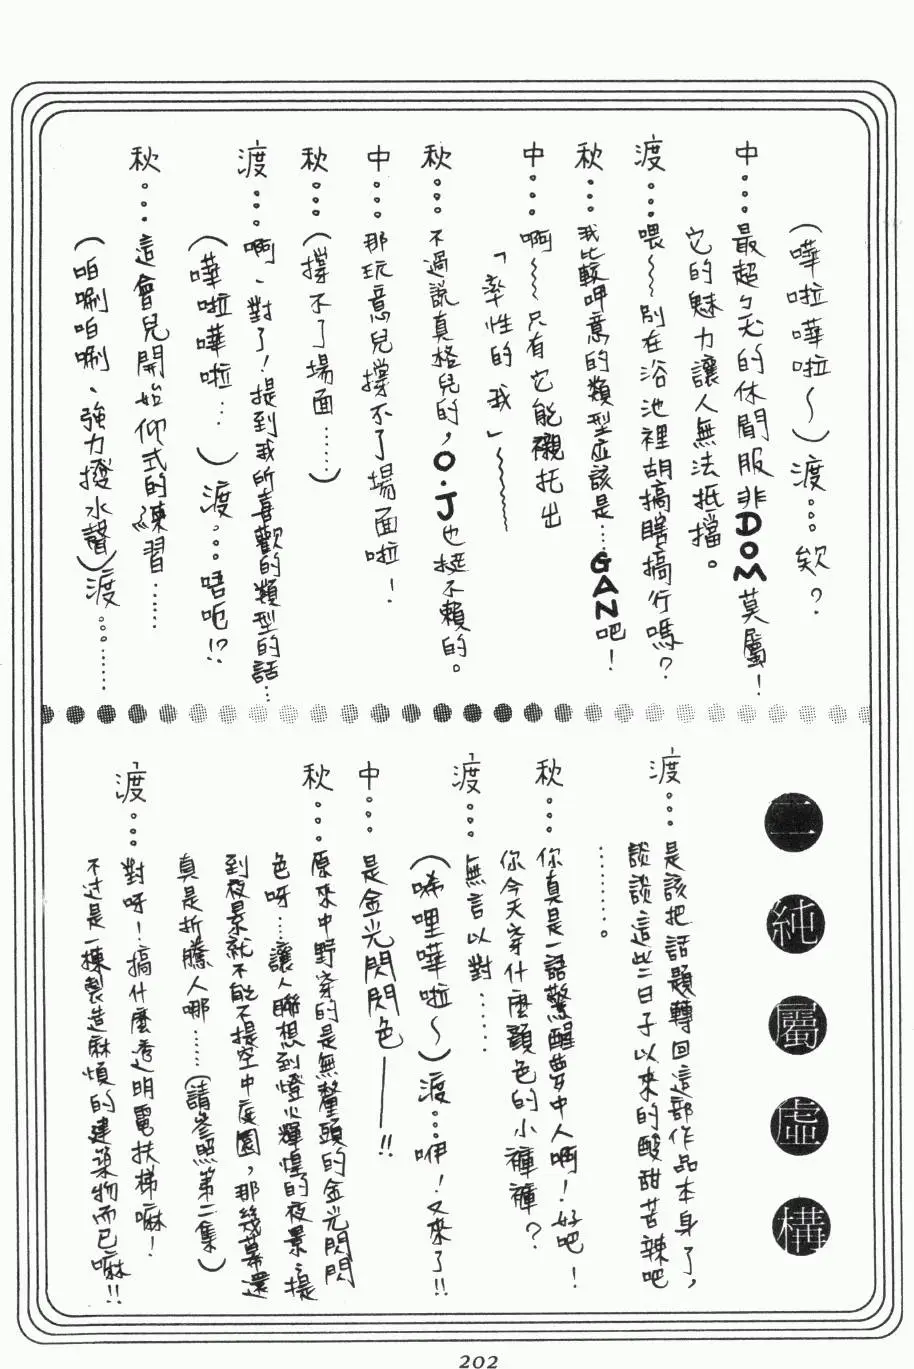 (嘩啦嘩啦～)渡：…欸？
中：…最超ㄅㄧㄤ的休閒服非DOM莫屬！
它的魅力讓人無法抵擋。
渡：…喂～～別在浴池裡胡搞瞎搞行嗎？
秋：…我比較呷意的類型應該是…GAN吧！
中：…啊～～只有它能襯托出
「率性的我」～～～
秋：…不過說真格兒的，O.J也挺不賴的。
中：…那玩意兒撐不了場面啦！
秋：…(撐不了場面……)
渡：…啊、對了！提到我所喜歡的類型的話…
(嘩啦嘩啦…)渡：…唔呃!?
秋：…這會兒開始仰式的練習……
(啪唰啪唰、強力撥水聲)渡：………
二純屬虛構
渡：…是該把話題轉回這部作品本身了，
談談這些日子以來的酸甜苦辣吧
………。
秋：…你真是一語驚醒夢中人啊！好吧！
你今天穿什麼顏色的小褲褲？
渡：…無言以對……
(唏哩嘩啦～)渡：…咿！又來了!!
中：…是金光閃閃色——!!
秋：…原來中野穿的是無釐頭的金光閃閃
色呀…讓人聯想到燈火輝煌的夜景…提
到夜景就不能不提空中庭園，那幾幕還
真是折騰人哪……(請參照第二集)
渡：…對呀！搞什麼透明電扶梯嘛！
不过是一棟製造麻煩的建築物而已嘛!!
202